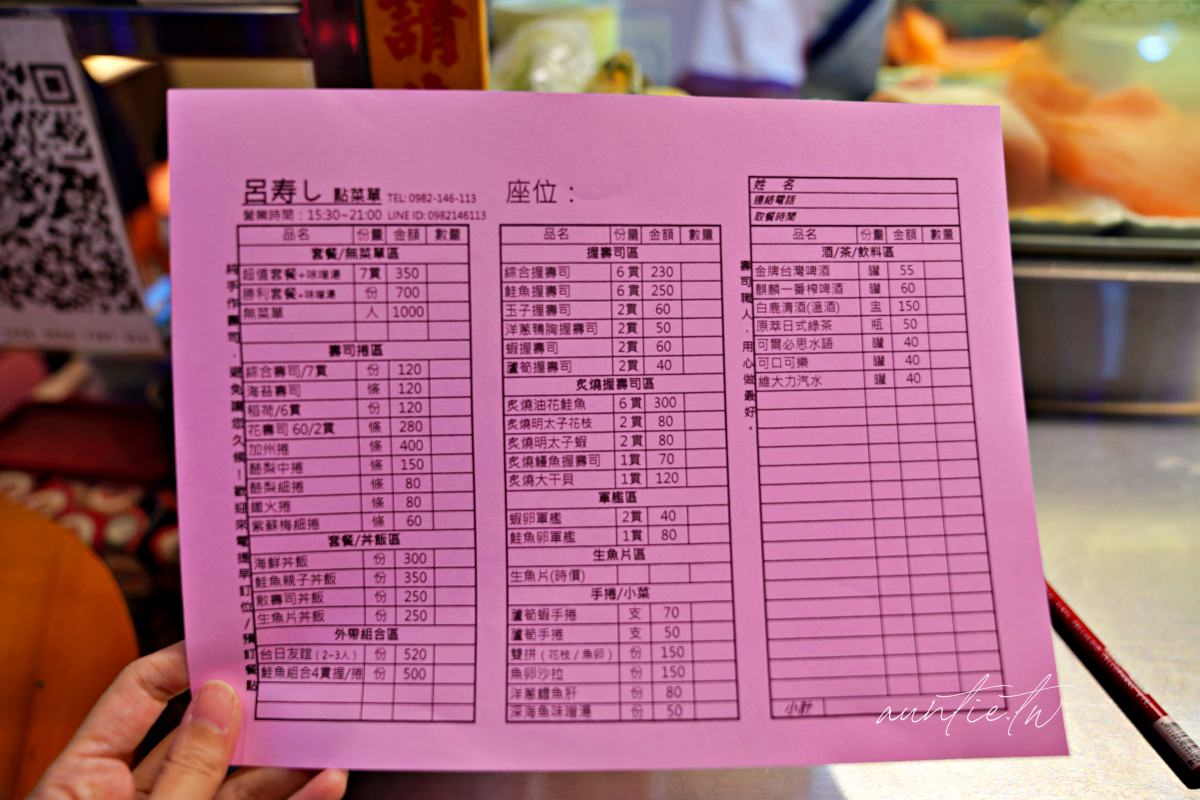 請
呂寿し 點菜單 TEL: 0982-146-113
營業時間：15:30~21:00 LINE ID: 0982146113
純手作壽司．避免讓您久候！歡迎來電提早訂位/預訂餐點
品名 份量 金額 數量
套餐/無菜單區
超值套餐+味噌湯 7貫 350
勝利套餐+味噌湯 份 700
無菜單 人 1000
壽司捲區
綜合壽司/7貫 份 120
海苔壽司 條 120
稻荷/6貫 份 120
花壽司 60/2貫 條 280
加州捲 條 400
酪梨中捲 條 150
酪梨細捲 條 80
鐵火捲 條 80
紫蘇梅細捲 條 60
套餐/丼飯區
海鮮丼飯 份 300
鮭魚親子丼飯 份 350
散壽司丼飯 份 250
生魚片丼飯 份 250
外帶組合區
台日友誼（2~3人） 份 520
鮭魚組合4貫握/捲 份 500
座位：
品名 份量 金額 數量
握壽司區
綜合握壽司 6貫 230
鮭魚握壽司 6貫 250
玉子握壽司 2貫 60
洋蔥鴨胸握壽司 2貫 50
蝦握壽司 2貫 60
蘆筍握壽司 2貫 40
炙燒握壽司區
炙燒油花鮭魚 6貫 300
炙燒明太子花枝 2貫 80
炙燒明太子蝦 2貫 80
炙燒鰻魚握壽司 1貫 70
炙燒大干貝 1貫 120
軍艦區
蝦卵軍艦 2貫 40
鮭魚卵軍艦 1貫 80
生魚片區
生魚片(時價)
手捲/小菜
蘆筍蝦手捲 支 70
蘆筍手捲 支 50
雙拼（花枝/魚卵） 份 150
魚卵沙拉 份 150
洋蔥鱈魚肝 份 80
深海魚味噌湯 份 50
姓 名
連絡電話
取餐時間
壽司職人．用心做最好。
品名 份量 金額 數量
酒/茶/飲料區
金牌台灣啤酒 罐 55
麒麟一番榨啤酒 罐 60
白鹿清酒(溫酒) 盅 150
原萃日式綠茶 瓶 50
可爾必思水語 罐 40
可口可樂 罐 40
維大力汽水 罐 40
小計
auntie.tw